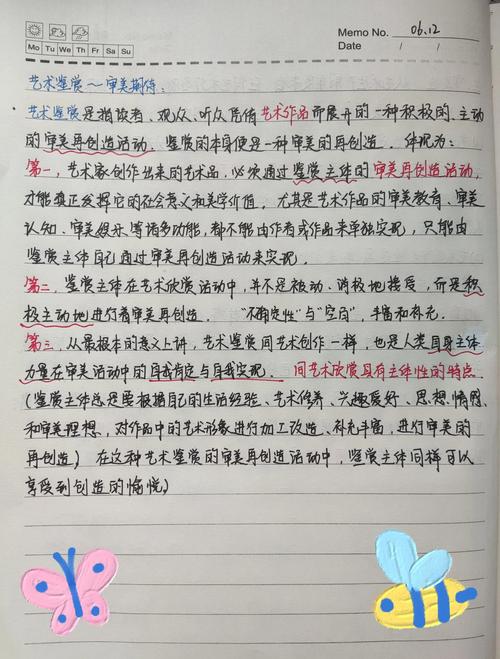 Memo No. 06.12
Mo Tu We Th Fr Sa Su
Date / /
艺术鉴赏~审美期待:
艺术鉴赏是指读者、观众、听众凭借艺术作品而展开的一种积极的、主动
的审美再创造活动。鉴赏的本身便是一种审美的再创造。体现为:
第一,艺术家创作出来的艺术品,必须通过鉴赏主体的审美再创造活动,
才能真正发挥它的社会意义和美学价值。尤其是艺术作品的审美教育、审美
认知、审美娱乐等诸多功能,都不能由作者或作品来单独实现,只能由
鉴赏主体自己通过审美再创造活动来实现。
第二,鉴赏主体在艺术欣赏活动中,并不是被动、消极地接受,而是积
极主动地进行着审美再创造。“不确定性”与“空白”,丰富和补充。
第三,从最根本的意义上讲,艺术鉴赏同艺术创作一样,也是人类自身主体
力量在审美活动中的自我肯定与自我实现。同艺术欣赏具有主体性的特点
(鉴赏主体总是要根据自己的生活经验、艺术修养、兴趣爱好、思想、情感
和审美理想,对作品中的艺术形象进行加工改造、补充丰富,进行审美的
再创造)在这种艺术鉴赏的审美再创造活动中,鉴赏主体同样可以
享受到创造的愉悦)